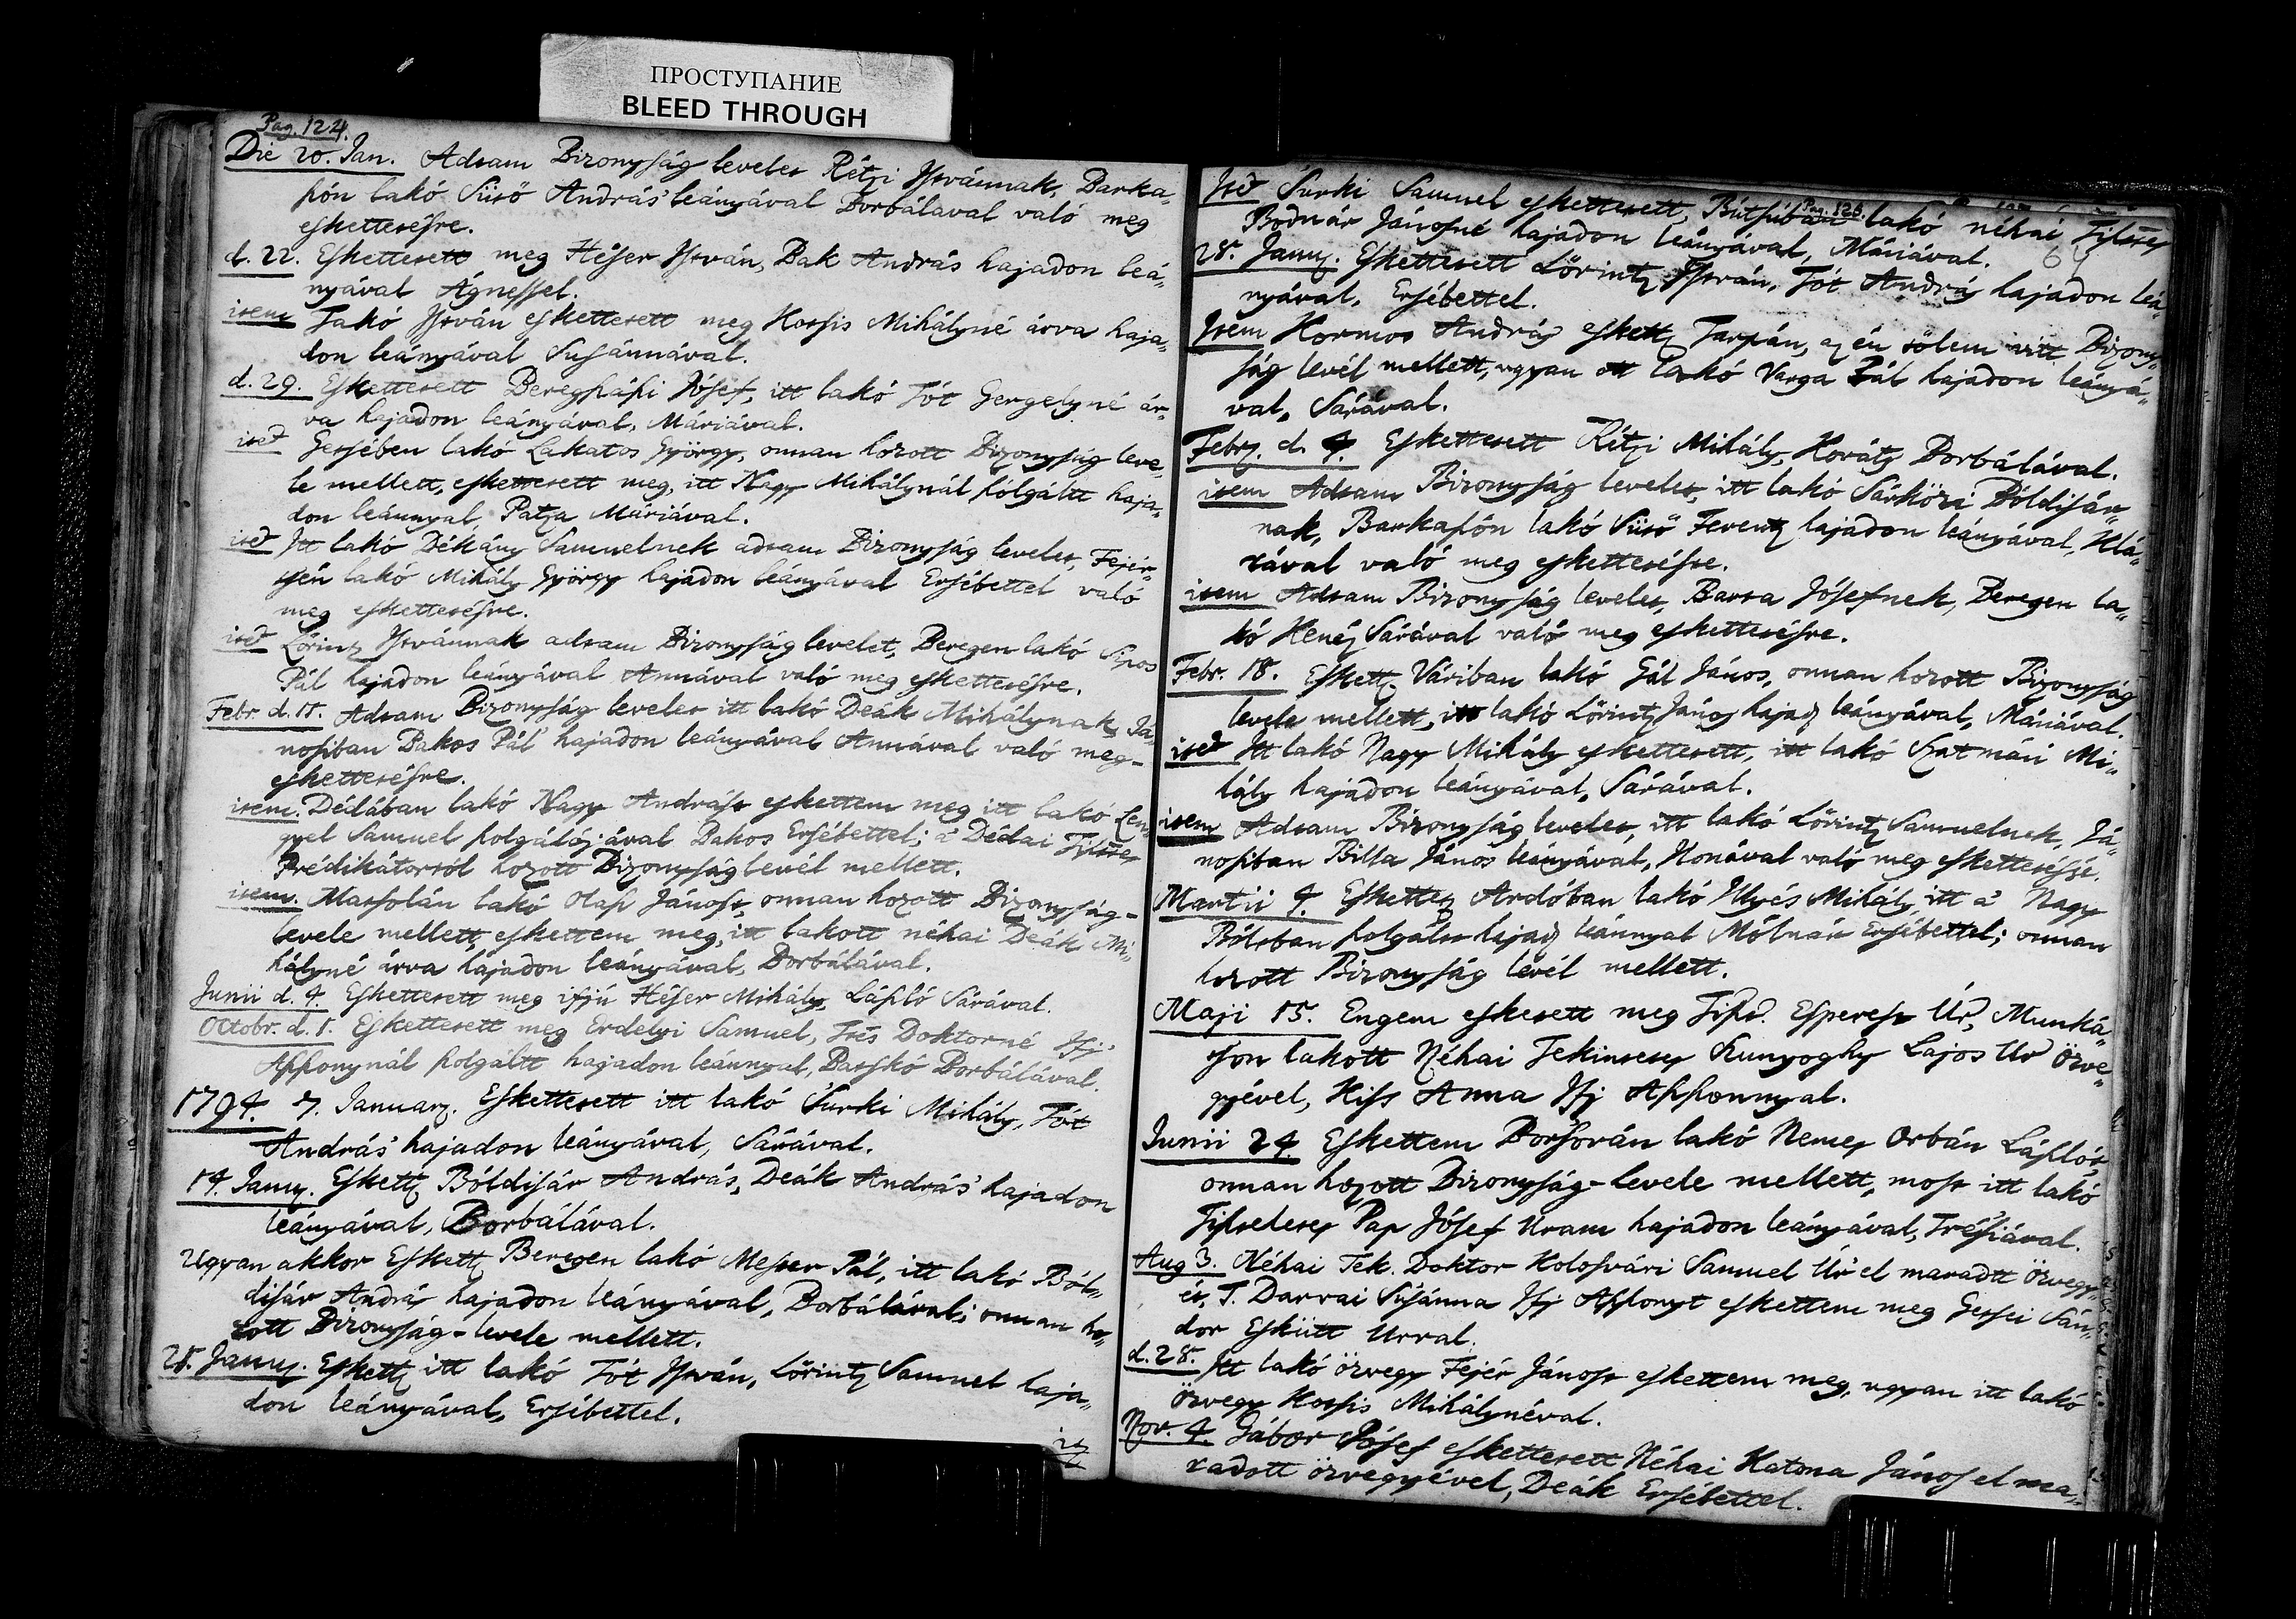 ПРОСТУПАНИЕ
BLEED THROUGH
Pag. 124.
Die 20. Jan. Adtam Bizonyság levelet Rétzi Istvánnak, Barka„
szón lakó Sütő András' leányával Borbálával való meg
eskettetésre.
d. 22. Eskettetett meg Héser István, Bak András hajadon leá„
nyával Ágnessel.
item Takó István eskettetett meg Kossis Mihályné árva haja„
don leányával Susánnával.
d. 29. Eskettetett Beregszászi Jósef, itt lakó Tót Gergelyné ár„
va hajadon leányával, Máriával.
itē Getsében lakó Lakatos György, onnan hozott Bizonyság leve„
le mellett, eskettetett meg, itt Nagy Mihálynál szólgáltt haja„
don leánnyal, Patza Máriával.
itē Itt lakó Dékány Samuelnek adtam Bizonyság levelet, Fejér„
tsén lakó Mihály György hajadon leányával Ersébettel való
meg eskettetésre.
itē Lőrintz Istvánnak adtam Bizonyság levelet, Beregen lakó Sipos
Pál hajadon leányával Annával való meg eskettetésre.
Febr. d. 11. Adtam Bizonyság levelet itt lakó Deák Mihálynak, Já„
nosiban Bakos Pál' hajadon leányával Annával való meg-
eskettetésre.
item. Dédában lakó Nagy Andrást eskettem meg itt lakó Len„
gyel Samuel szolgálójával Bakos Ersébettel; a' Dédai Tisztes
Prédikátortól hozott Bizonyság levél mellett.
item. Massolán lakó Olasz Jánost, onnan hozott Bizonyság-
levele mellett eskettem meg, itt lakott néhai Deák Mi„
hályné árva hajadon leányával, Borbálával.
Junii d. 4. Eskettetett meg ifjú Héser Mihály, László Sárával.
Octobr. d. 1. Eskettetett meg Erdelyi Samuel, Doktorné Ifj'
Asszonynál szolgáltt hajadon leánnyal, Baskó Borbálával.
1794. 7. Januar. Eskettetett itt lakó Surki Mihály, Tót
András' hajadon leányával, Sárával.
14. Janu. Eskett. Bóldisár András, Deák András' hajadon
leányával, Borbálával.
Ugyan akkor Eskett. Beregen lakó Mester Pál, itt lakó Ból„
disár András hajadon leányával, Borbálával; onnan ho„
zott Bizonyság-levele mellett.
28. Janu. Eskett. itt lakó Tót István, Lőrintz Samuel haja„
don leányával, Ersébettel.
itē
Pag. 125.
64
Itē Surki Samuel eskettetett, Bútsúban lakó néhai Tisztes
Bodnár Jánosné hajadon leányával, Máriával.
28. Janu. Eskettetett Lőrintz István, Tót András hajadon leá„
nyával, Ersébettel.
Item Kormos András eskett. Tarpán, az én tőlem vitt Bizony„
ság levél mellett, ugyan ott lakó Varga Pál hajadon leányá„
val, Sárával.
Febr. d. 4. Eskettetett Rétzi Mihály, Korátz Borbálával.
item Adtam Bizonyság levelet, itt lakó Sárközi Bóldisár„
nak, Barkaszón lakó Sütő Ferentz hajadon leányával, Klá„
rával való meg eskettetésre.
item Adtam Bizonyság levelet, Barta Jósefnek, Beregen la„
kó Kenéz Sárával való meg eskettetésre.
Febr. 18. Eskett. Váriban lakó Gál János, onnan hozott Bizonyság
levele mellett, itt lakó Lőrintz János hajad. leányával, Máriával.
itē Itt lakó Nagy Mihály eskettetett, itt lakó Szatmári Mi„
hály hajadon leányával, Sárával.
item Adtam Bizonyság levelet, itt lakó Lőrintz Samuelnek, Já„
nosiban Billa János leányával, Ilonával való meg eskettetésre.
Martii 4. Eskettet. Ardóban lakó Illyés Mihály, itt a' Nagy
Bóltban szolgált hajad. leánnyal Mólnár Ersébettel; onnan
hozott Bizonyság levél mellett.
Maji 15. Engem esketett meg Tiszt. Esperest Úr, Munká„
tson lakott Néhai Tekintetes Kunyoghy Lajos Ur özve„
gyével, Kiss Anna Ifj Asszonnyal.
Junii 24. Eskettem Borsován lakó Nemes Orbán Lászlót,
onnan hozott Bizonyság-levele mellett, most itt lakó
Tiszteletes Pap Jósef Uram hajadon leányával, Trésiával.
Aug 3. Néhai Tek. Doktor Kolosvári Samuel Úr el maradtt özvegy„
ét, T. Darvai Susánna Ifj Asszonyt eskettem meg Getsei Sán„
dor Eskütt Urral.
d. 28. Itt lakó özvegy Fejér Jánost eskettem meg, ugyan itt lakó
Özvegy Kossis Mihálynéval.
Nov. 4. Gábor Jósef eskettetett Néhai Katona János el ma„
radott özvegyével, Deák Ersébettel.